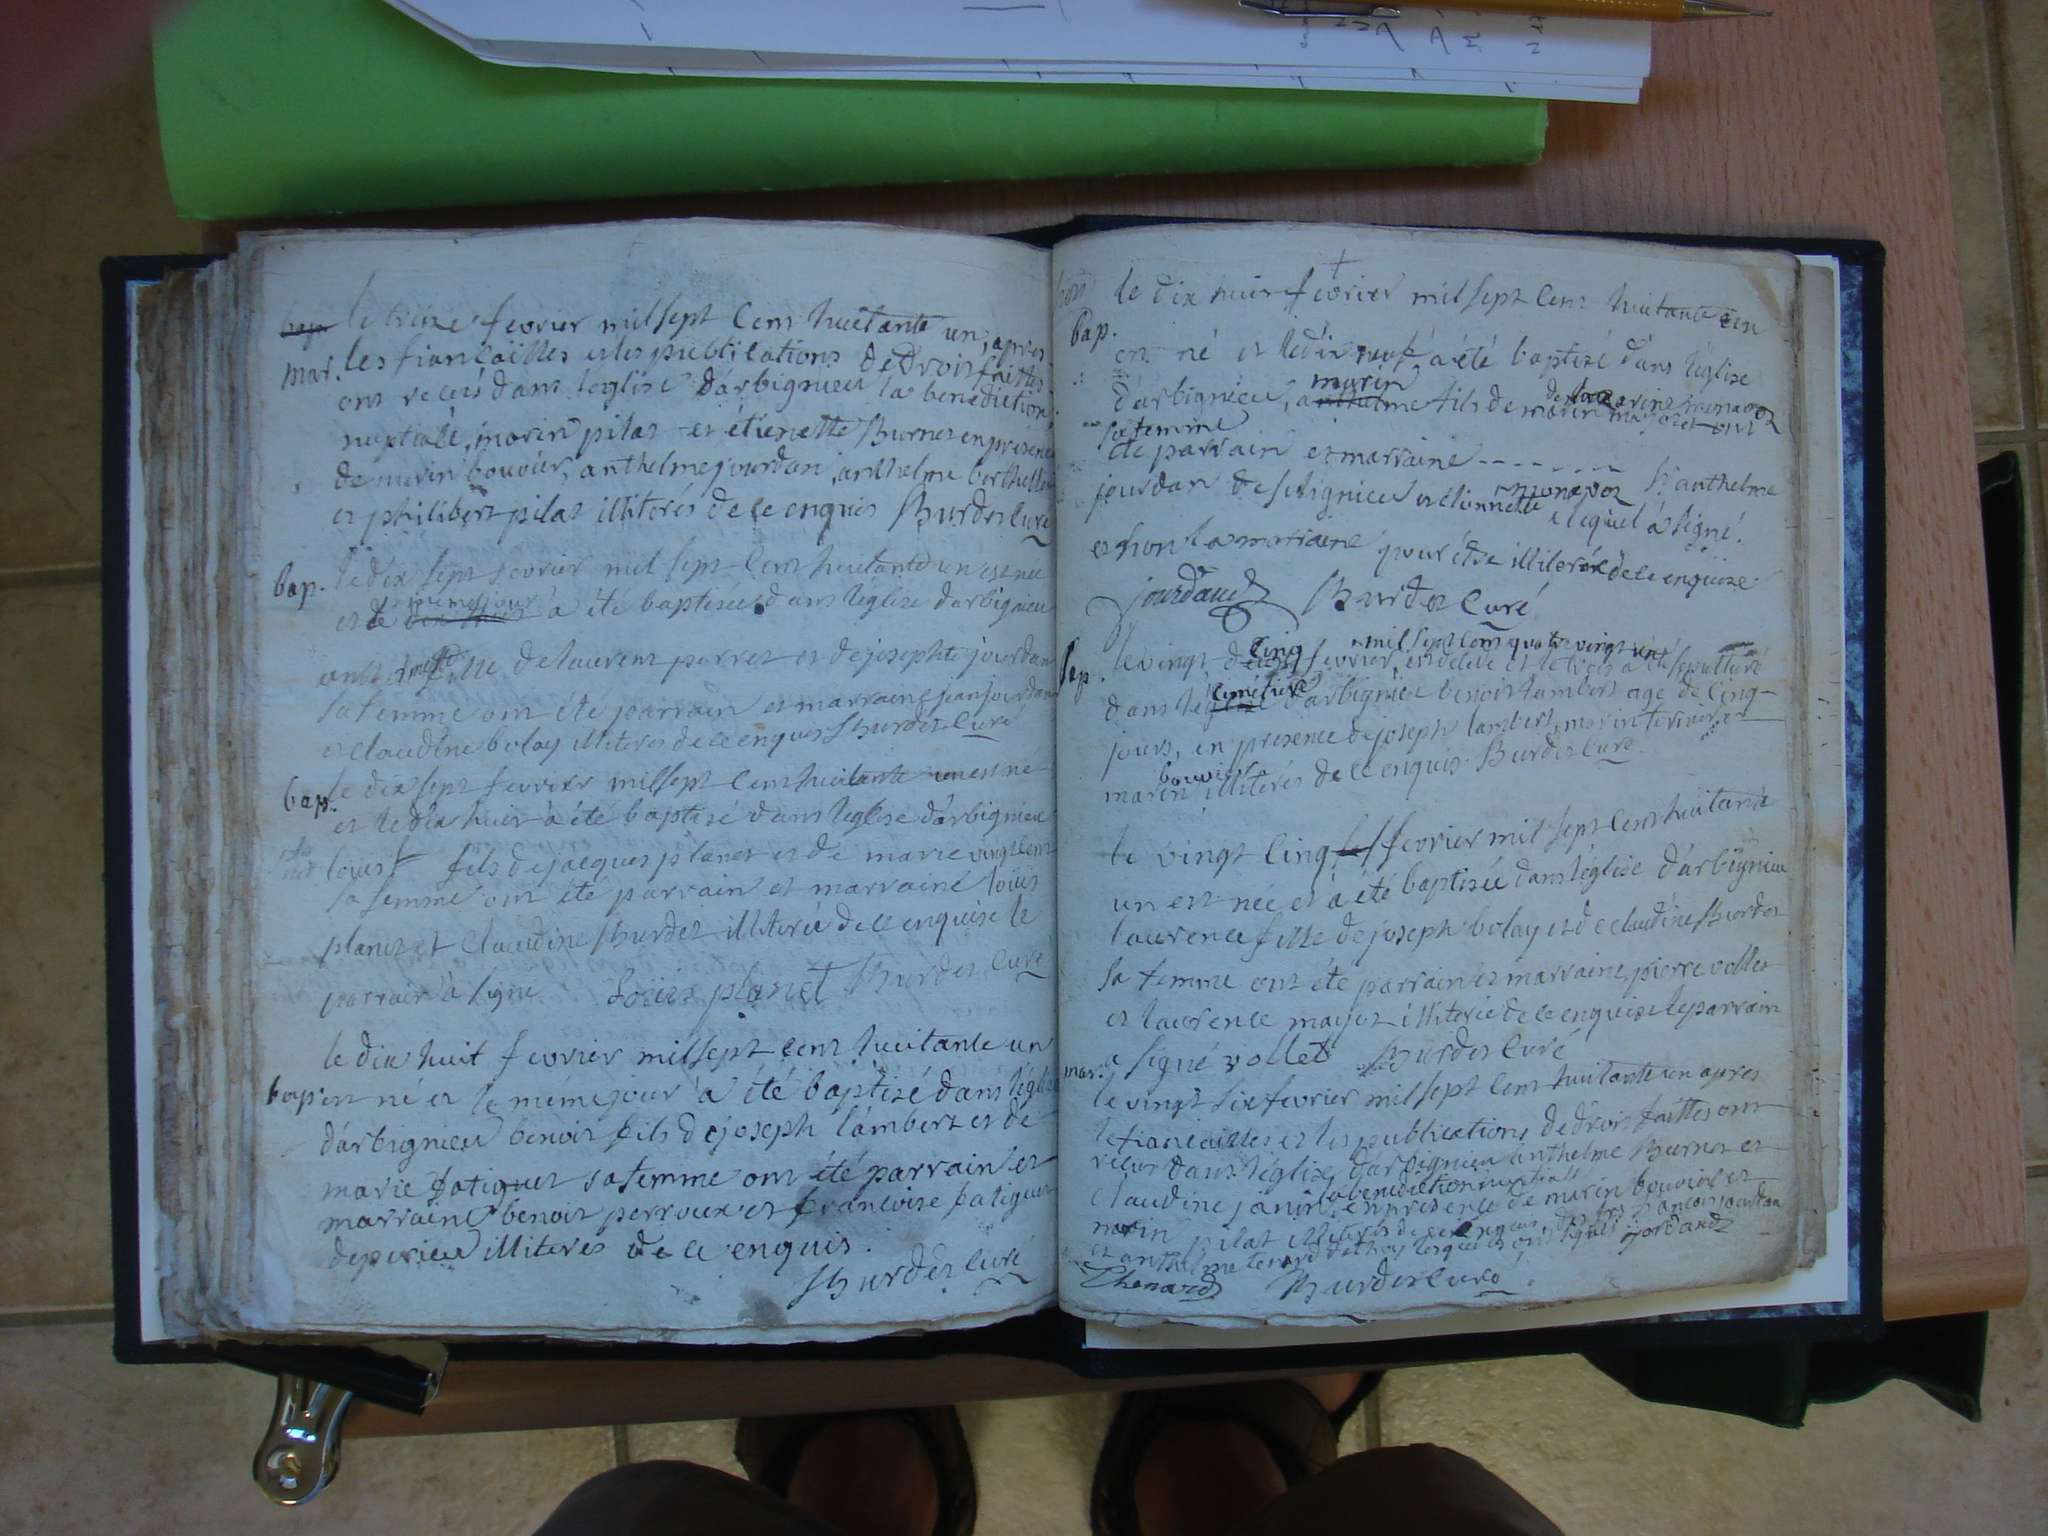 bap. le treize fevrier mil sept cent huitante un, apres
mar. les fiancailles et les publications de droit faittes
ont recus dans leglise d'arbignieu la benediction
nuptiale, marin pilat et étienette Burnet en presence
de marin bouvier, anthelme jourdan, anthelme berthellet
et philibert pilat illiterés de ce enquis Burdet curé
bap. le dix sept fevrier mil sept cent huitante un est née
et le même jour a été baptisée dans leglise d'arbignieu
fille de laurent perret et de josephte jourdan
sa femme ont été parrain et marraine jean jourdan
et claudine bolay illiteres de ce enquis Burdet curé
bap. le dix sept fevrier mil sept cent huitante un est né
et le dix huit à été baptisé dans leglise d'arbignieu
louis fils de jacques planet et de marie vingt cent
sa femme ont été parrain et marraine louis
planet et claudine Burdet illiterée de ce enquise le
parrain à signé Louis planet Burdet curé
le dix huit fevrier mil sept cent huitante un
bap. est né et le même jour a été baptisé dans léglise
d'arbignieu benoit fils de joseph lambert et de
marie fatiguet sa femme ont été parrain et
marraine benoit perroux et francoise fatiguet
de peirieu illiteres de ce enquis.
Burdet curé
le dix huit fevrier mil sept cent huitante un
bap. est né et le dix neuf a été baptisé dans l'église
d'arbignieu, marin fils de marin
sa femme
été parrain et marraine - - - - - - - Sr anthelme
jourdan de sétignieu et étiennette monavoz lequel à signé.
et non la marraine pour être illiterée de ce enquise
jourdand Burdet curé
sep. le vingt cinq fevrier mil sept cent quatre vingt un
dans cimetiere d'arbignieu benoit lambert agé de cinq
jours, en presence de joseph lambert, marin
marin bouvier illiterés de ce enquis. Burdet curé.
le vingt cinq fevrier mil sept cent huitante
un est née et à été baptisée dans léglise d'arbignieu
laurence fille de joseph bolay et de claudine Burdet
sa femme ont été parrain et marraine, pierre vollet
et laurence mayot illiterée de ce enquise le parrain
a signé vollet Burdet curé
mar. le vingt six fevrier mil sept cent huitante un apres
le fiancailles et les publications de droit faittes ont
recus dans léglise d'arbignieu anthelme Burnet et
claudine janin la benediction nuptiale en presence de marin bouvier et
marin pilat illiterés de ce enquis, francois jourdan
et anthelme lesquels ont signés jordand
Thenard Burdet curé